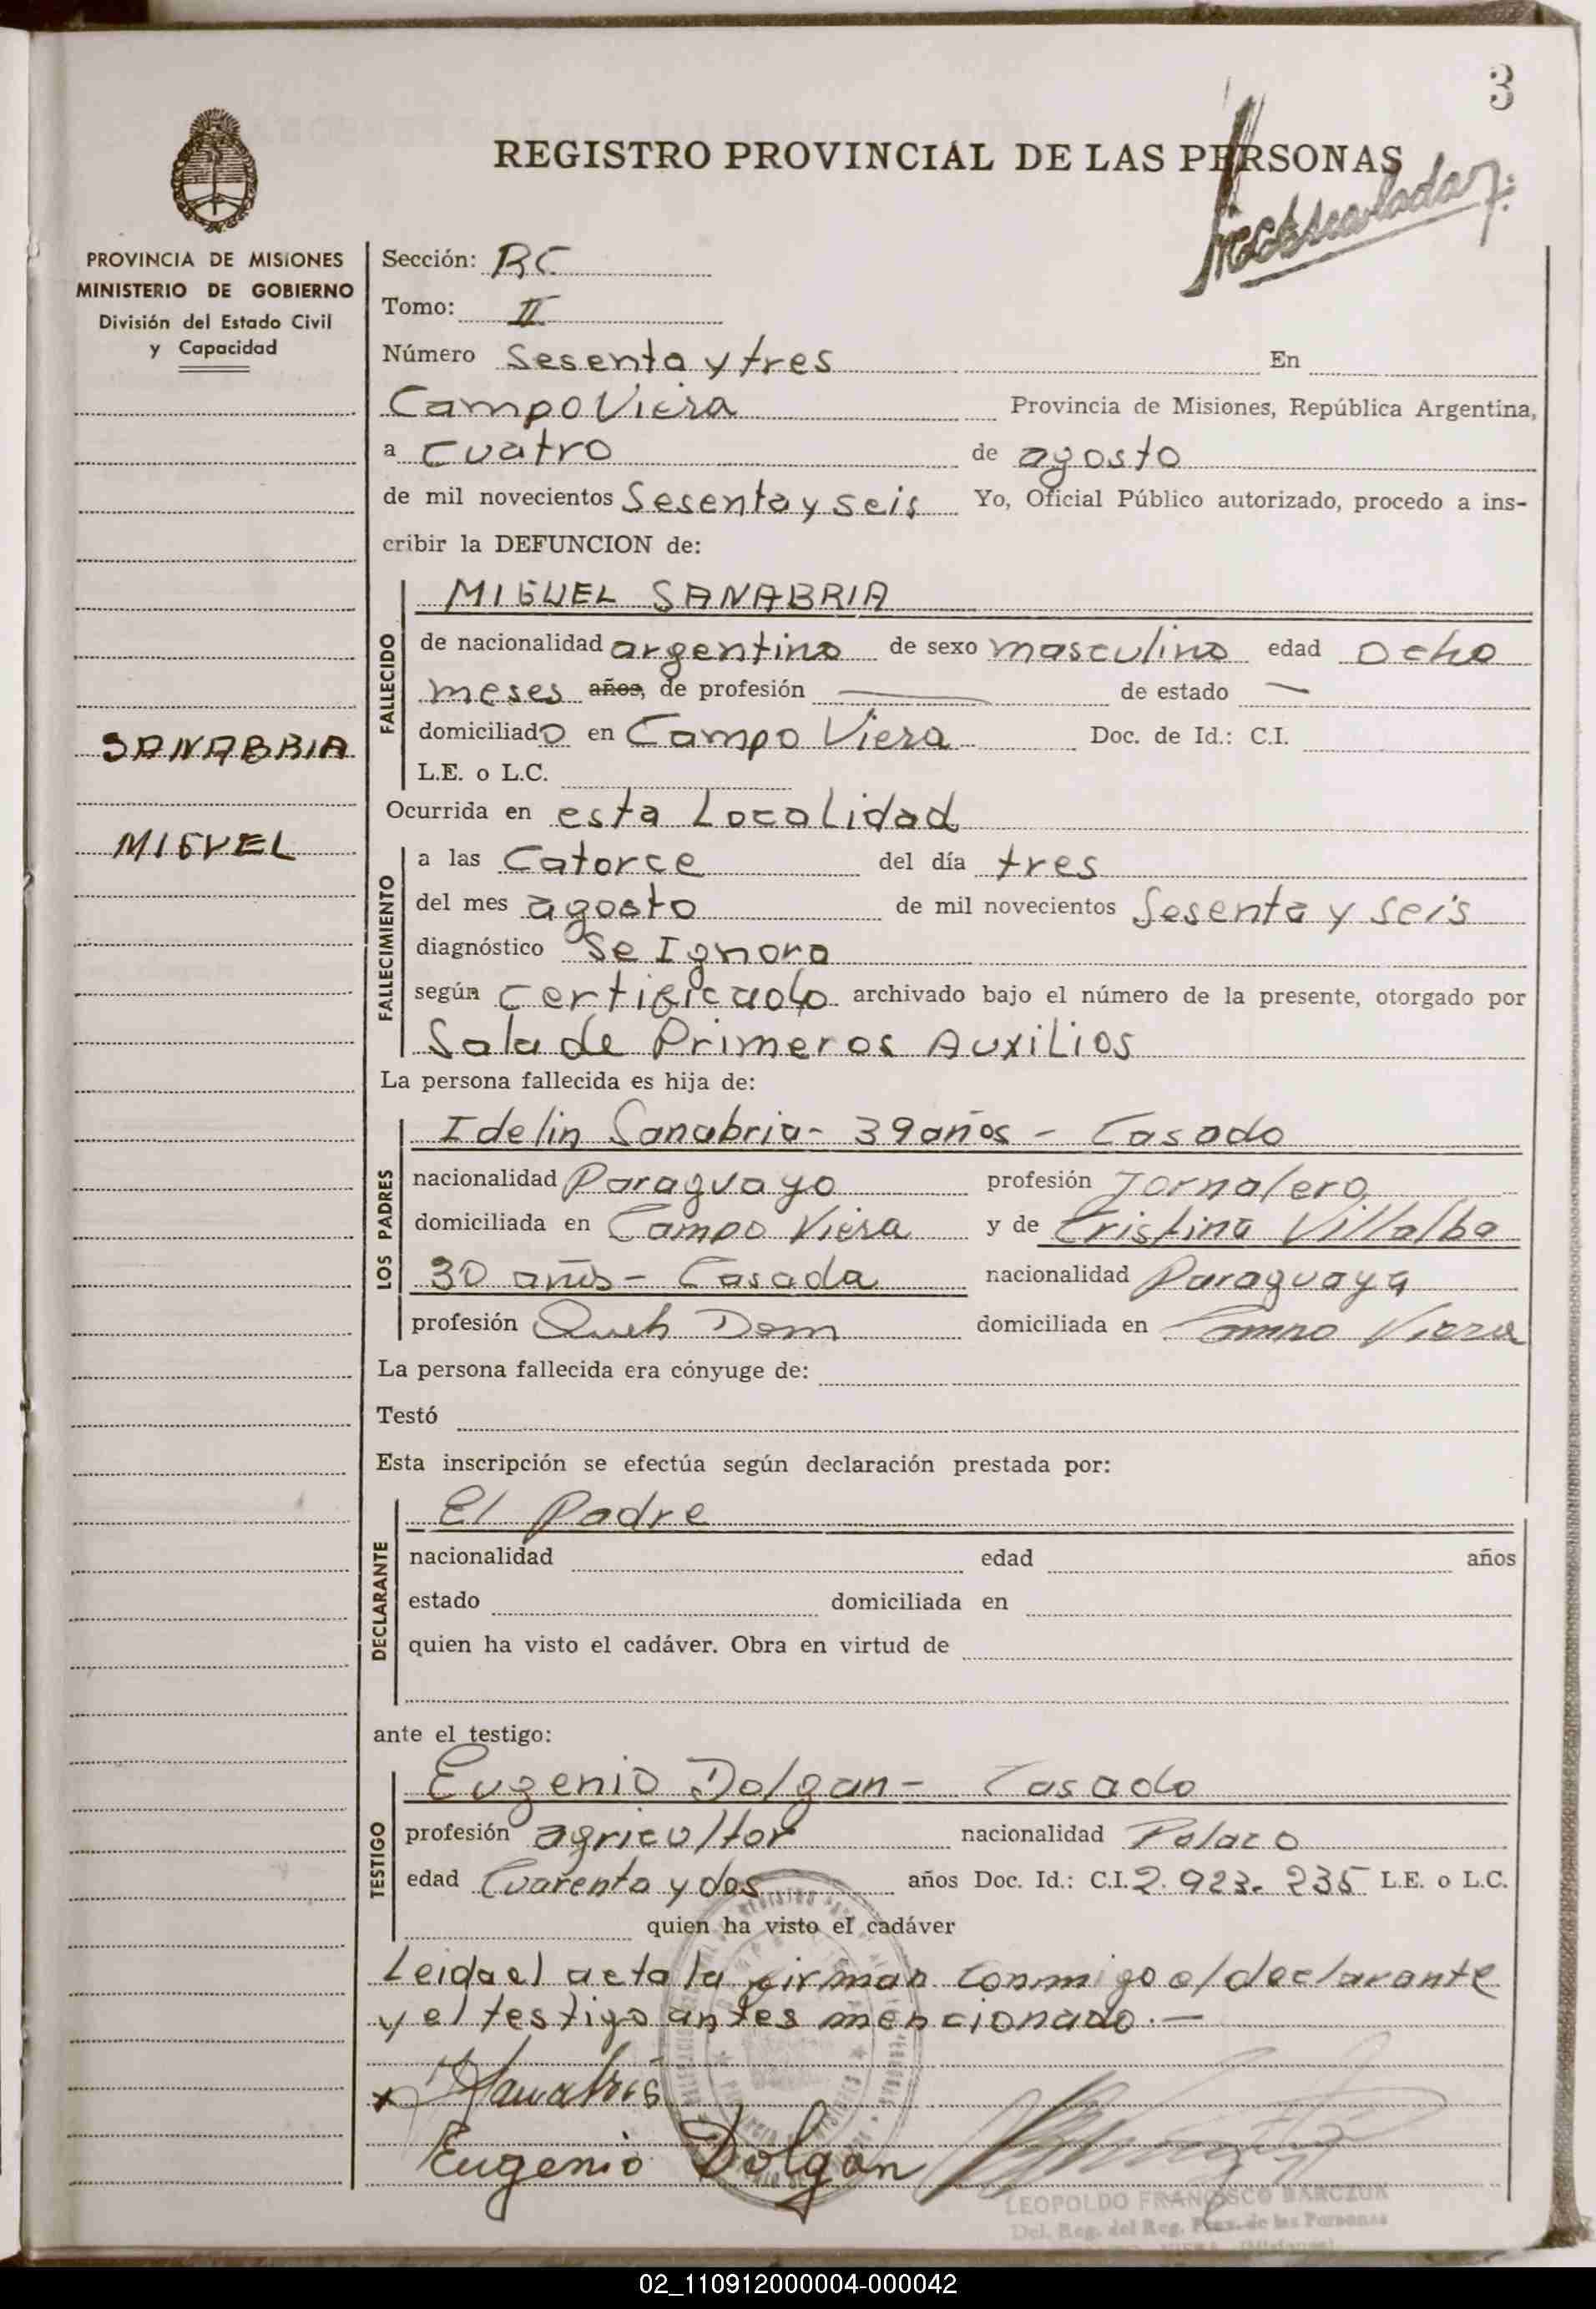 3
REGISTRO PROVINCIAL DE LAS PERSONAS
PROVINCIA DE MISIONES
MINISTERIO DE GOBIERNO
División del Estado Civil
y Capacidad
SANABRIA
MIGUEL
Sección: RC
Tomo: II
Número Sesenta y tres En
Campo Viera Provincia de Misiones, República Argentina,
a cuatro de agosto
de mil novecientos Sesenta y seis Yo, Oficial Público autorizado, procedo a ins-
cribir la DEFUNCION de:
FALLECIDO
MIGUEL SANABRIA
de nacionalidad argentino de sexo masculino edad Ocho
meses años, de profesión — de estado —
domiciliado en Campo Viera Doc. de Id.: C.I.
L.E. o L.C.
Ocurrida en esta Localidad
FALLECIMIENTO
a las Catorce del día tres
del mes agosto de mil novecientos Sesenta y seis
diagnóstico Se Ignora
según certificado archivado bajo el número de la presente, otorgado por
Sala de Primeros Auxilios
La persona fallecida es hija de:
LOS PADRES
Idelin Sanabria - 39 años - Casado
nacionalidad Paraguayo profesión Jornalero
domiciliada en Campo Viera y de Cristina Villalba
30 años - Casada nacionalidad Paraguaya
profesión Queh Dom domiciliada en Campo Viera
La persona fallecida era cónyuge de:
Testó
Esta inscripción se efectúa según declaración prestada por:
DECLARANTE
El Padre
nacionalidad edad años
estado domiciliada en
quien ha visto el cadáver. Obra en virtud de
ante el testigo:
TESTIGO
Eugenio Dolgan - Casado
profesión agricultor nacionalidad Polaco
edad Cuarenta y dos años Doc. Id.: C.I. 2.923.235 L.E. o L.C.
quien ha visto el cadáver
Leida el acta la firman conmigo el declarante
y el testigo antes mencionado.—
Eugenio Dolgan
LEOPOLDO FRANCISCO BARCZUK
Del. Reg. del Reg. Prov. de las Personas
02_110912000004-000042